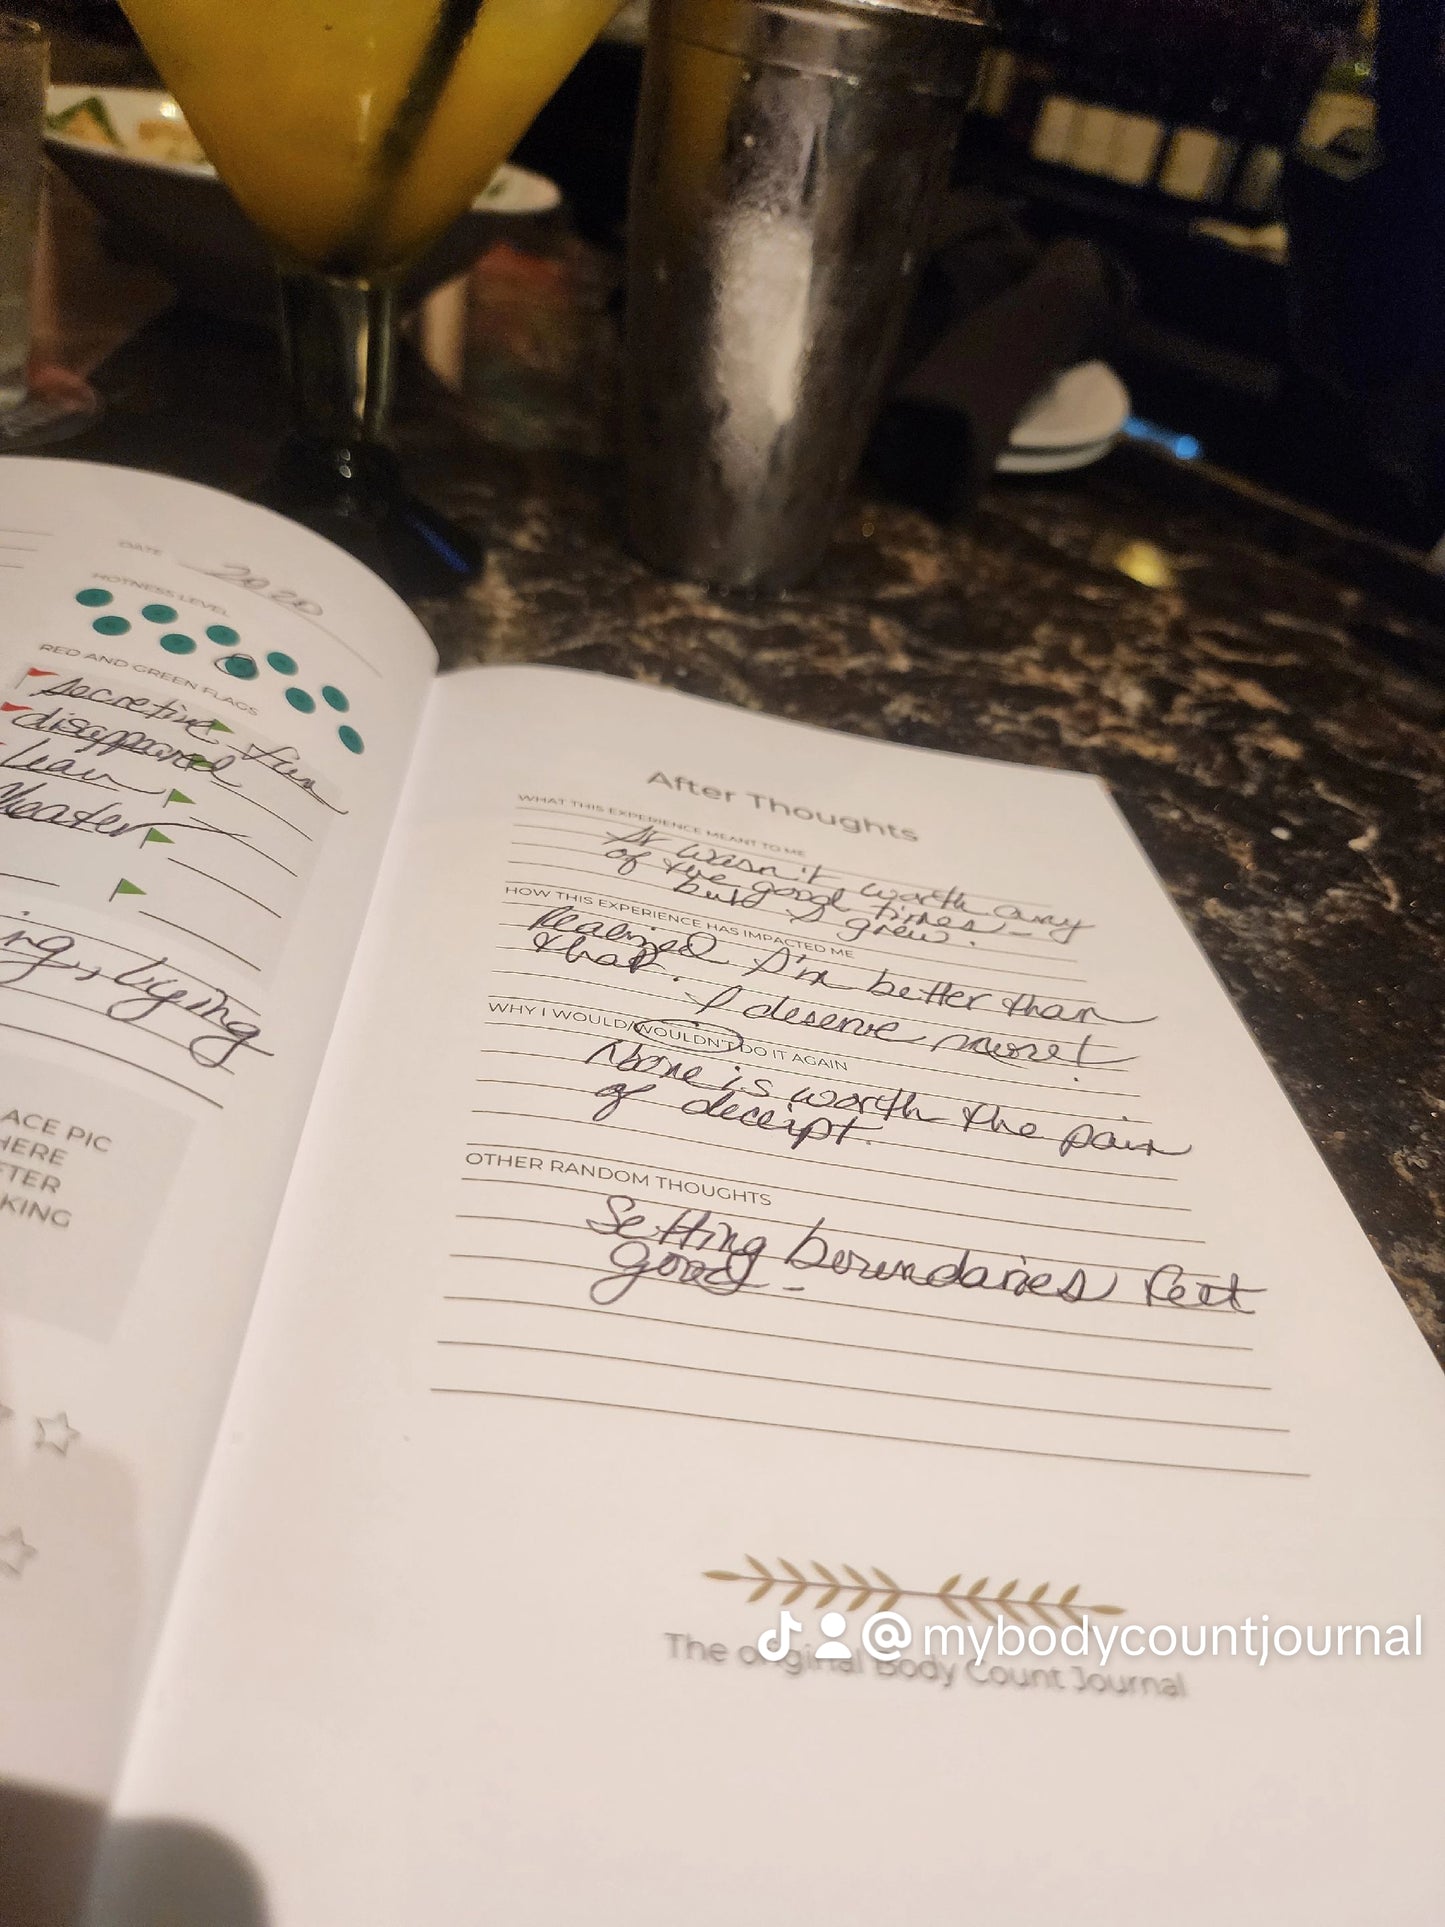 DATE 2020
HOTNESS LEVEL
RED AND GREEN FLAGS
secretive fun
disappeared
cheater
ing, lying
ACE PIC
HERE
FTER
KING
After Thoughts
WHAT THIS EXPERIENCE MEANT TO ME
It wasn't worth any
of the good times -
but I grew.
HOW THIS EXPERIENCE HAS IMPACTED ME
Realized I'm better than
that. I deserve more!
WHY I WOULD/WOULDN'T DO IT AGAIN
None is worth the pain
of deceipt.
OTHER RANDOM THOUGHTS
Setting boundaries feet
good -
The original Body Count Journal
@mybodycountjournal